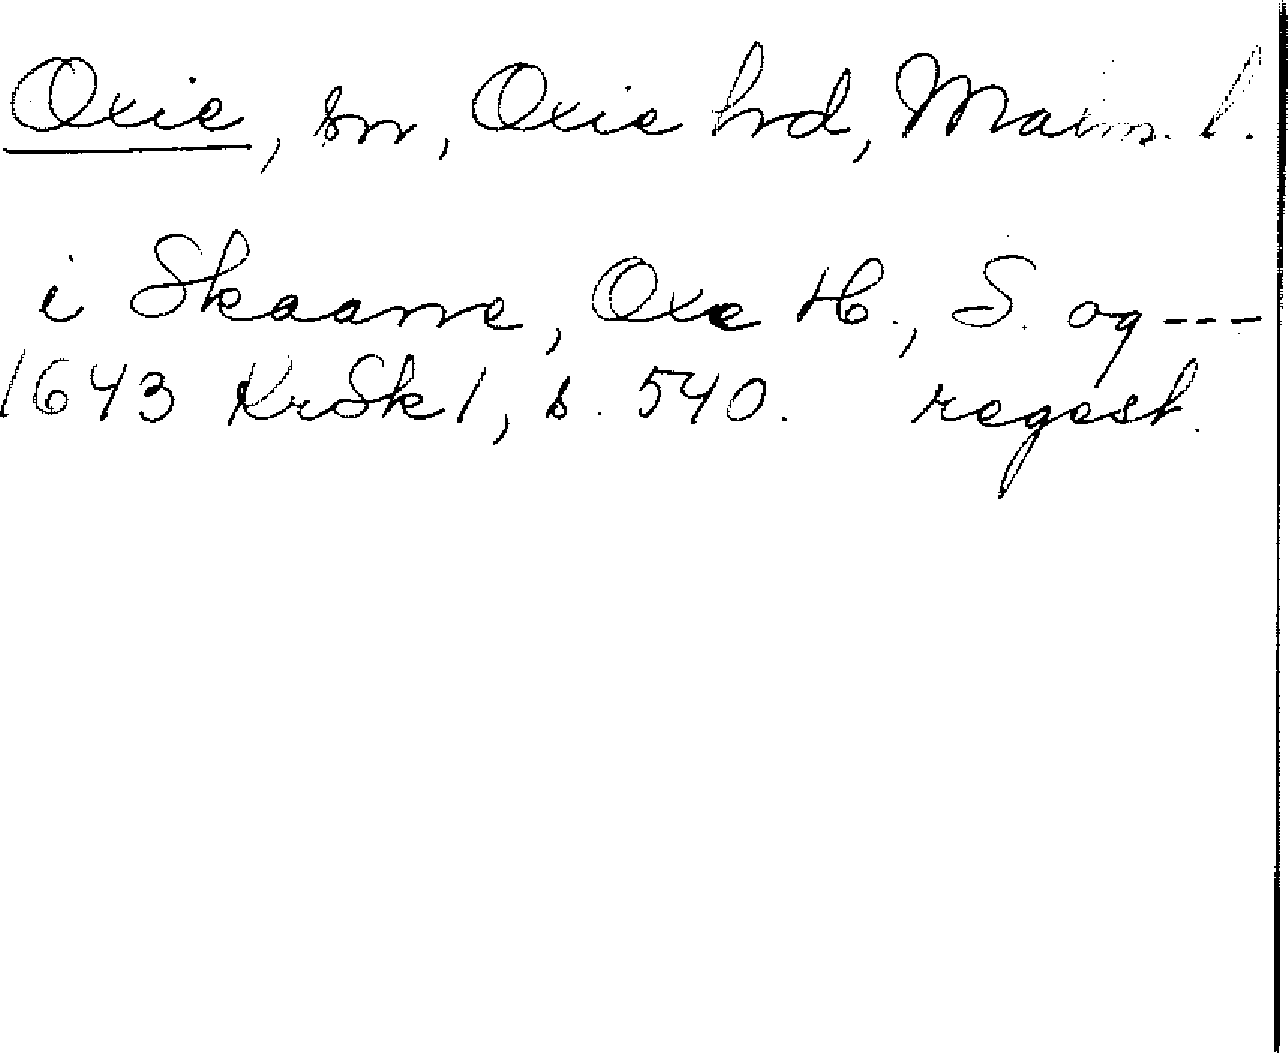 Oxie, sn, Oxie hrd, Malm. l.
i Skaane, Oxe H., S. og ---
1643 KrSk 1, s. 540. regest.